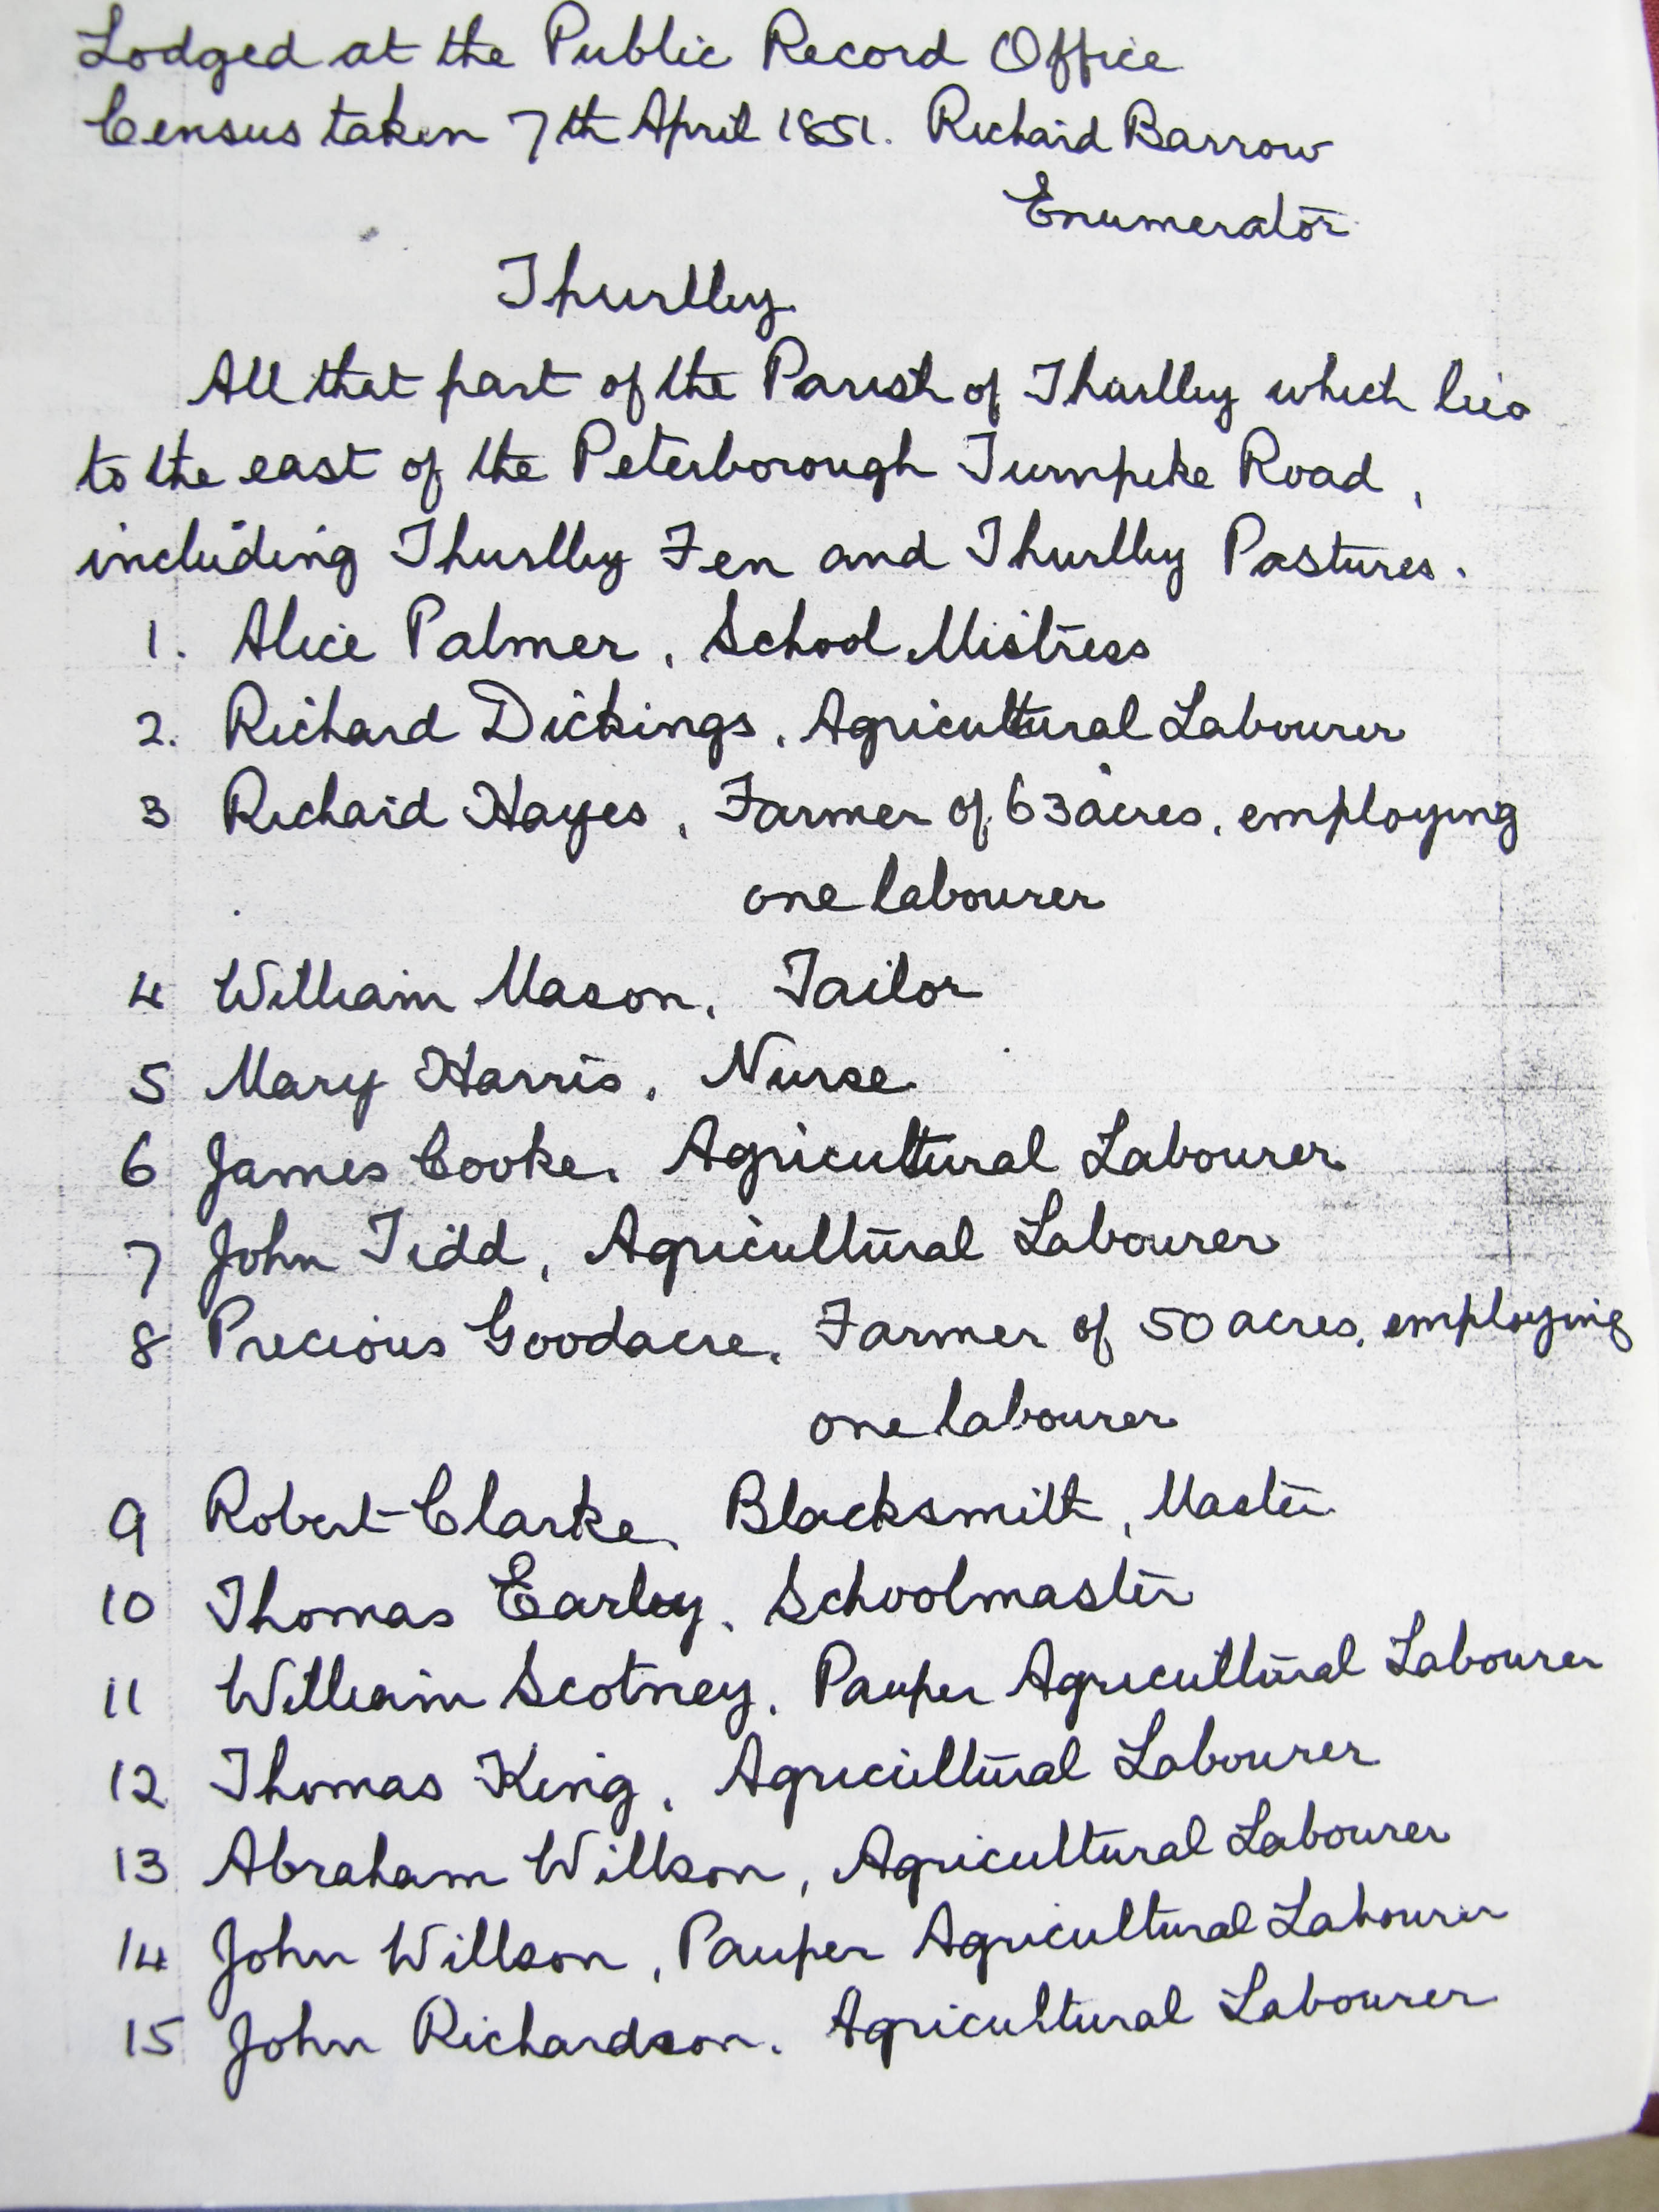 Lodged at the Public Record Office
Census taken 7th April 1851. Richard Barrow
Enumerator
Thurlby
All that part of the Parish of Thurlby which lies
to the east of the Peterborough Turnpike Road,
including Thurlby Fen and Thurlby Pastures.
1. Alice Palmer, School Mistress
2. Richard Dickings, Agricultural Labourer
3 Richard Hayes, Farmer of 63 acres, employing
one labourer
4 William Mason, Tailor
5 Mary Harris, Nurse
6 James Cooke, Agricultural Labourer
7 John Tidd, Agricultural Labourer
8 Precious Goodacre, Farmer of 50 acres, employing
one labourer
9 Robert Clarke, Blacksmith, Master
10 Thomas Earley, Schoolmaster
11 William Scotney, Pauper Agricultural Labourer
12 Thomas King, Agricultural Labourer
13 Abraham Willson, Agricultural Labourer
14 John Willson, Pauper Agricultural Labourer
15 John Richardson. Agricultural Labourer